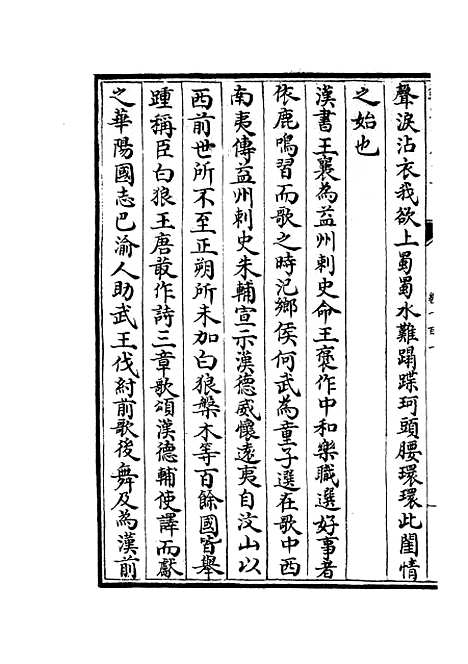 聲淚沾衣我欲上蜀蜀水難蹋蹀珂頭腰環環此閨情
之始也
漢書王襄為益州刺史命王褒作中和樂職選好事者
依鹿鳴習而歌之時汜鄉侯何武為童子選在歌中西
南夷傳益州刺史朱輔宣示漢德威懷遠夷自汶山以
西前世所不至正朔所未加白狼槃木等百餘國皆舉
踵稱臣白狼王唐菆作詩三章歌頌漢德輔使譯而獻
之華陽國志巴渝人助武王伐紂前歌後舞及為漢前